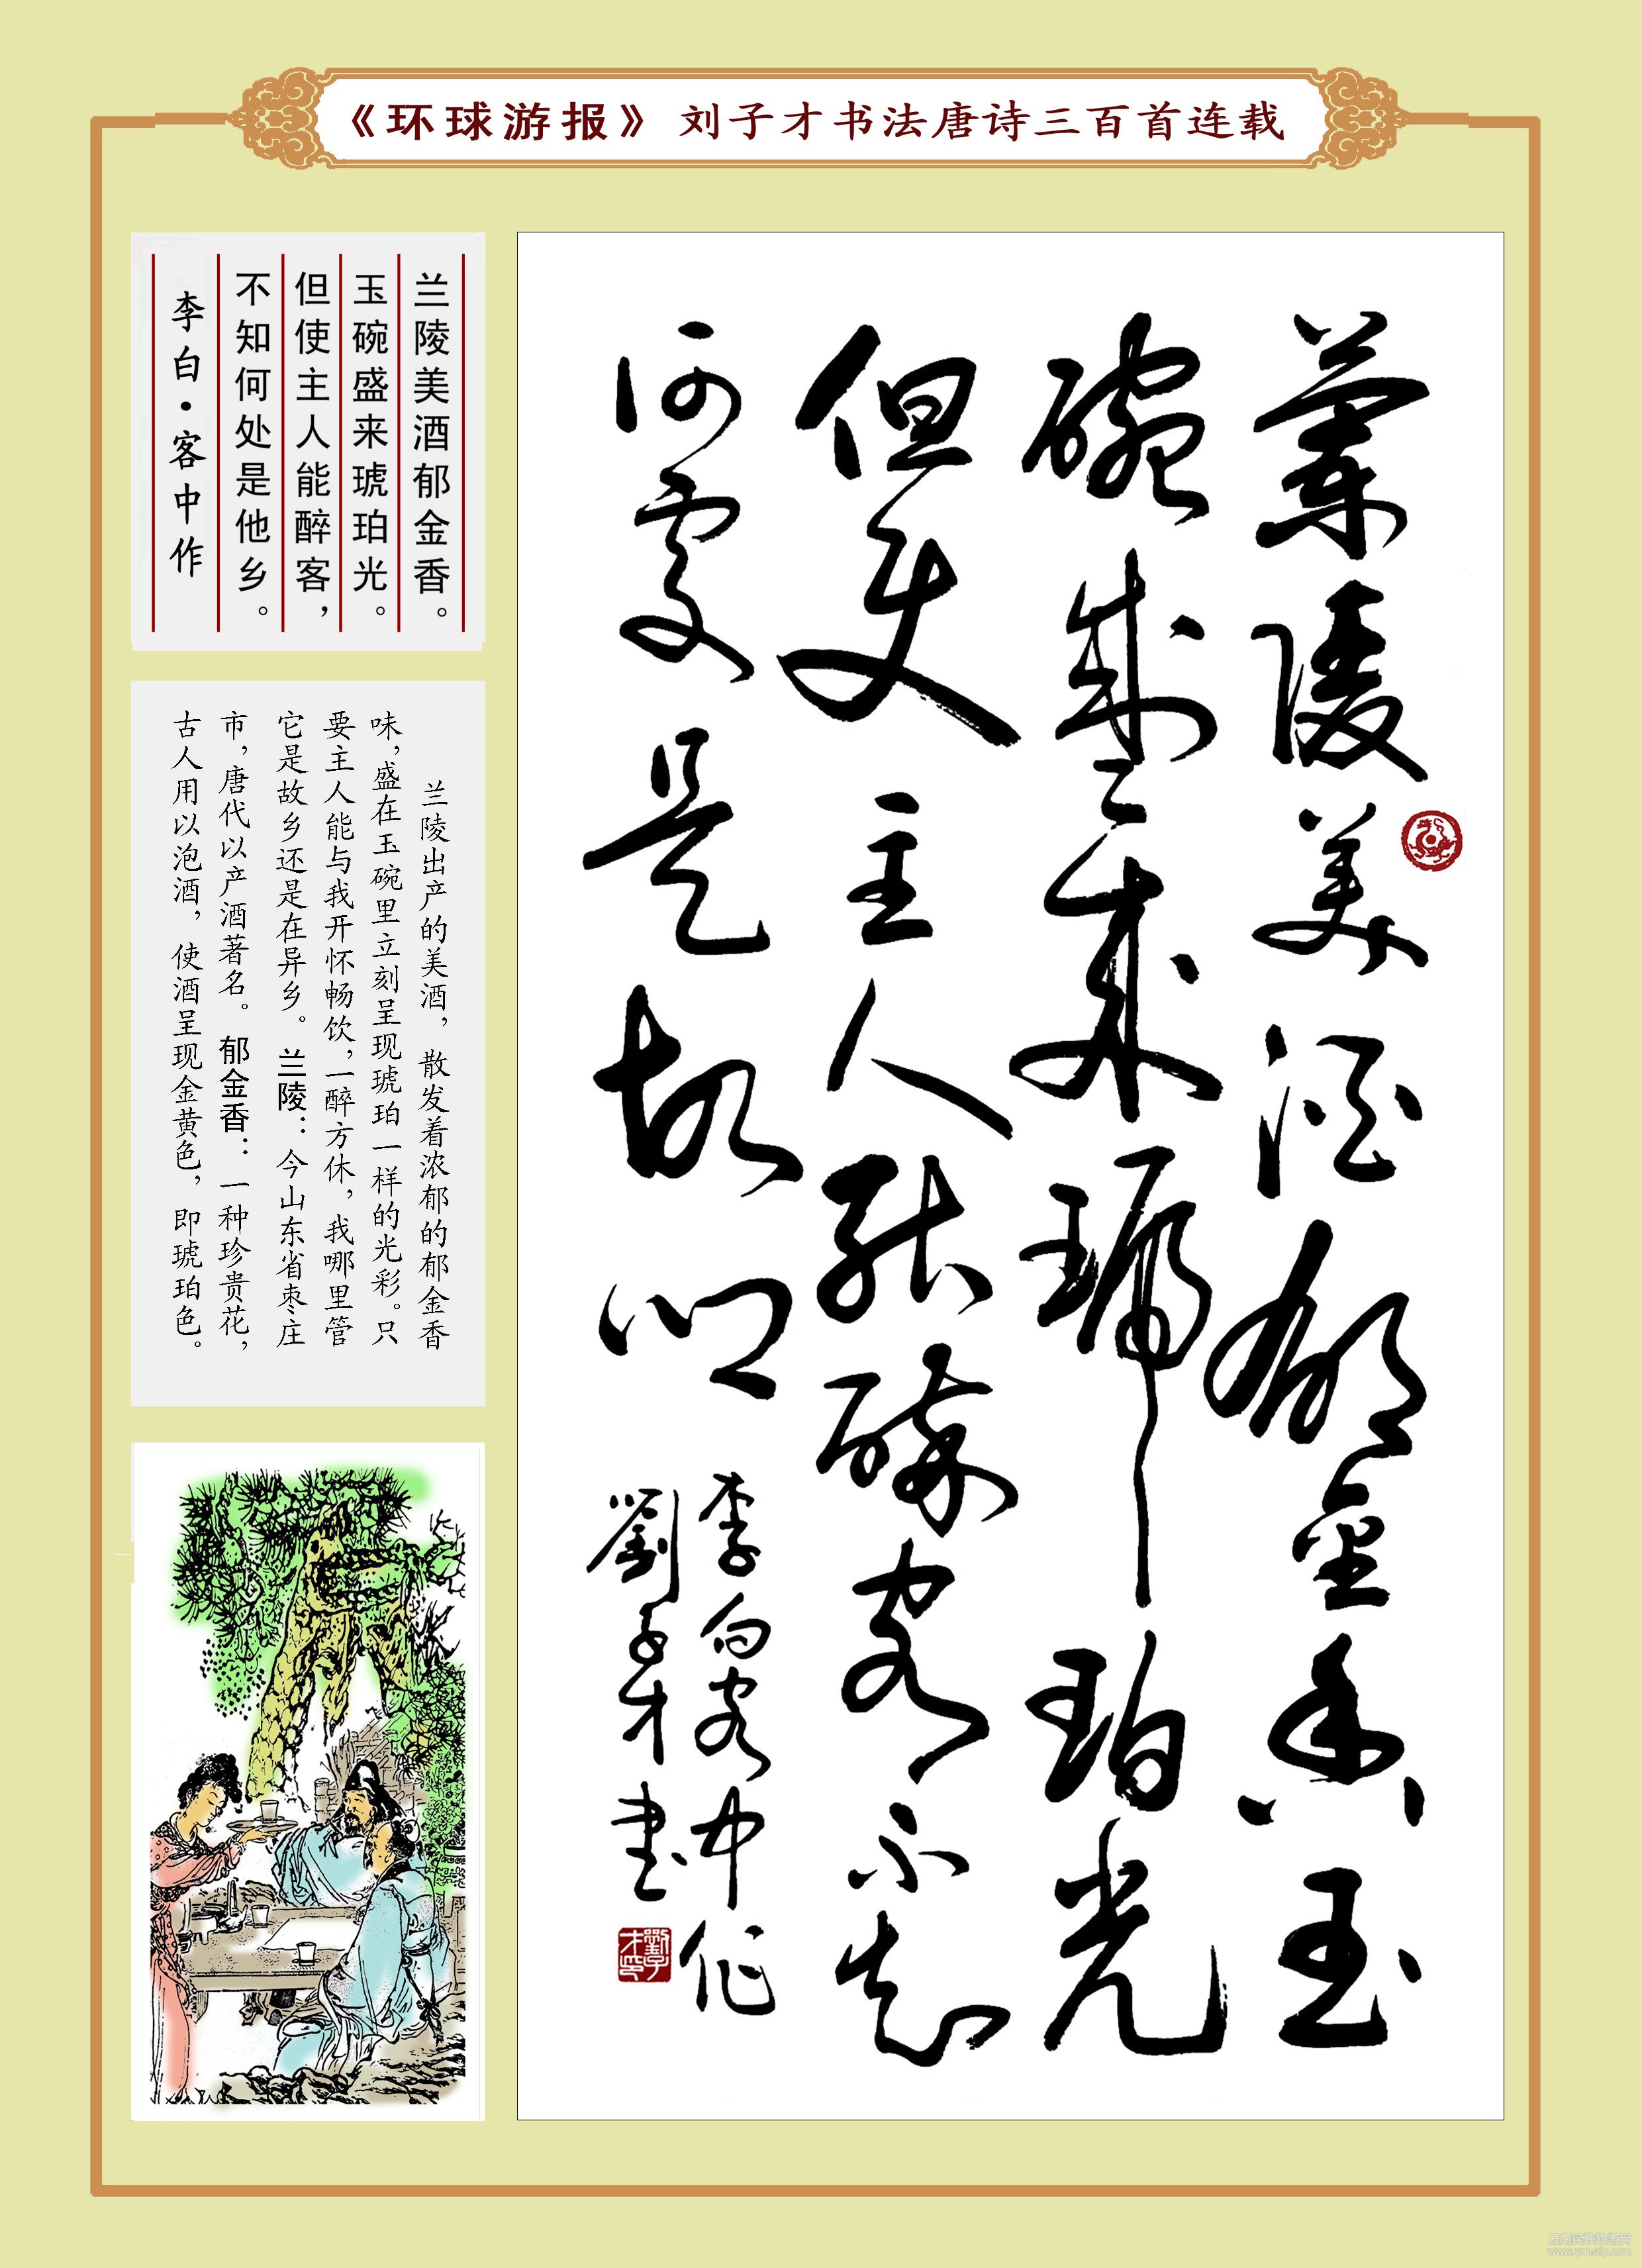 《环球游报》 刘子才书法唐诗三百首连载
蘭陵美酒郁金香玉
碗盛来琥珀光
但使主人能醉客不知
何處是故鄉
李白客中作
劉子才書
劉子才印
兰陵美酒郁金香。
玉碗盛来琥珀光。
但使主人能醉客，
不知何处是他乡。
李白·客中作
兰陵出产的美酒，散发着浓郁的郁金香
味，盛在玉碗里立刻呈现琥珀一样的光彩。只
要主人能与我开怀畅饮，一醉方休，我哪里管
它是故乡还是在异乡。兰陵：今山东省枣庄
市，唐代以产酒著名。郁金香：一种珍贵花，
古人用以泡酒，使酒呈现金黄色，即琥珀色。